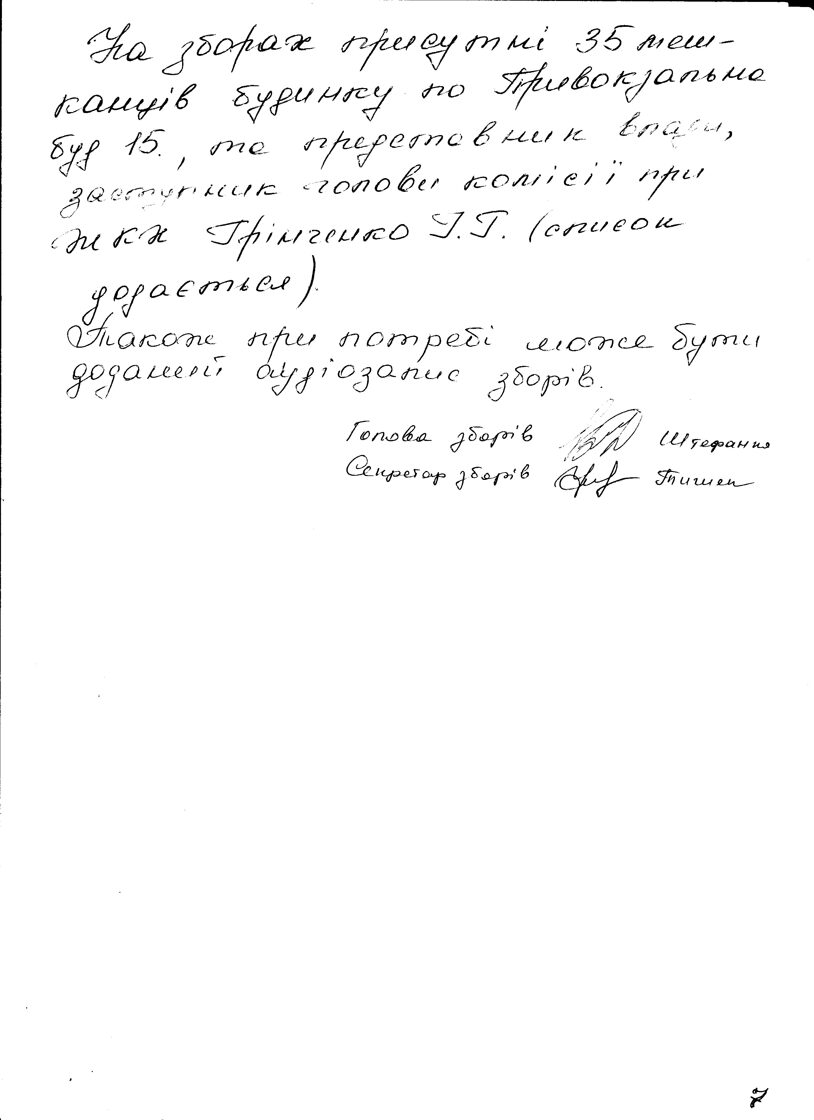 На зборах присутні 35 меш-
канців будинку по Привокзальна
буд 15., та представник влади,
заступник голови комісії при
ЖКХ Грінченко І.Г. (список
додається).
Також при потребі може бути
доданий аудіозапис зборів.
Голова зборів Штефанко
Секретар зборів
7